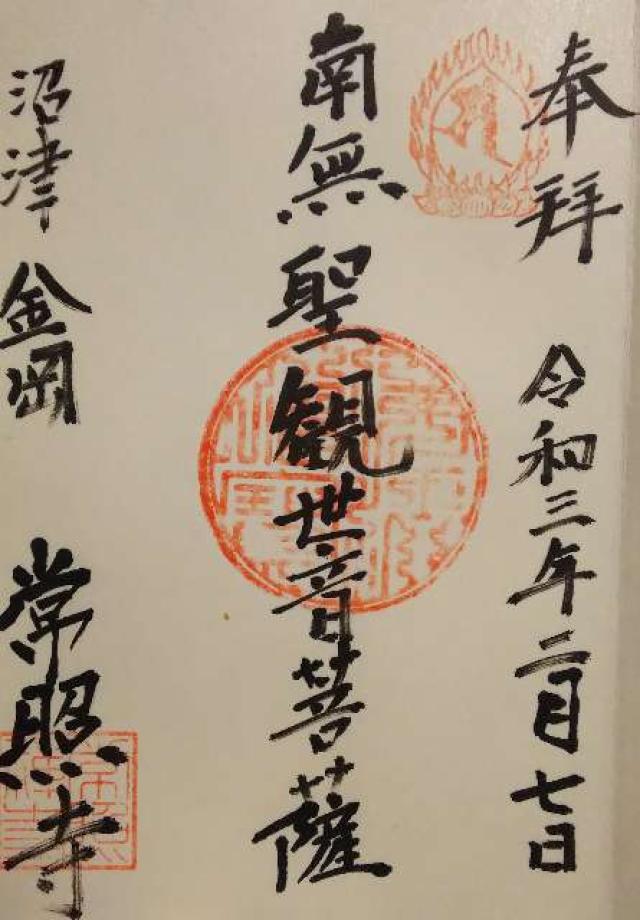 奉拝 令和三年二月七日
南無聖観世音菩薩
沼津 金岡 常照寺